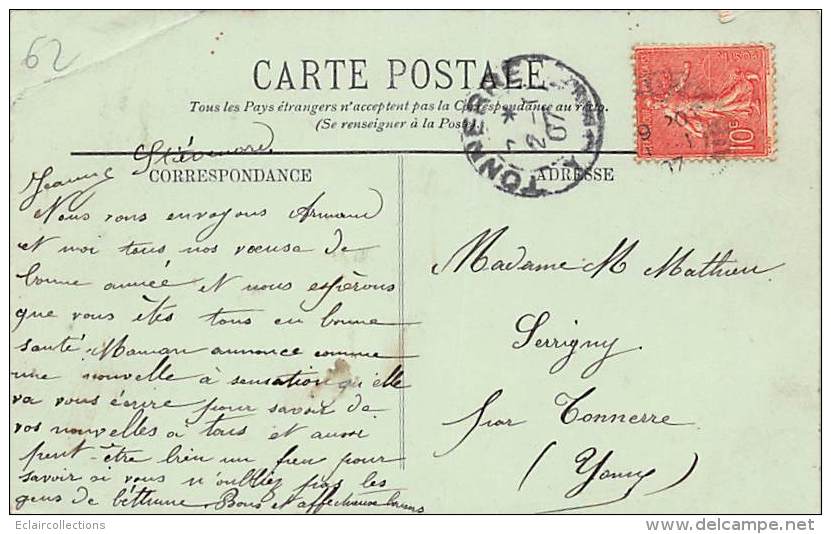 62
CARTE POSTALE
Tous les Pays étrangers n'acceptent pas la Correspondance au recto.
(Se renseigner à la Poste)
TONNERRE
* 2 -1 07
10c
CORRESPONDANCE
ADRESSE
Jeanne
Nous vous envoyons Armand
et moi tous nos vœuse de
bonne année et nous espérons
que vous êtes tous en bonne
santé Maman annonce comme
une nouvelle à sensation qu'elle
va vous écrire pour savoir de
vos nouvelles a tous et aussi
peut-être bien un peu pour
savoir si vous n'oubliez pas les
gens de béthune. Bons et affectueux
Madame M Mathieu
Serrigny
par Tonnerre
(Yonne)
Eclaircollections
delcampe.net